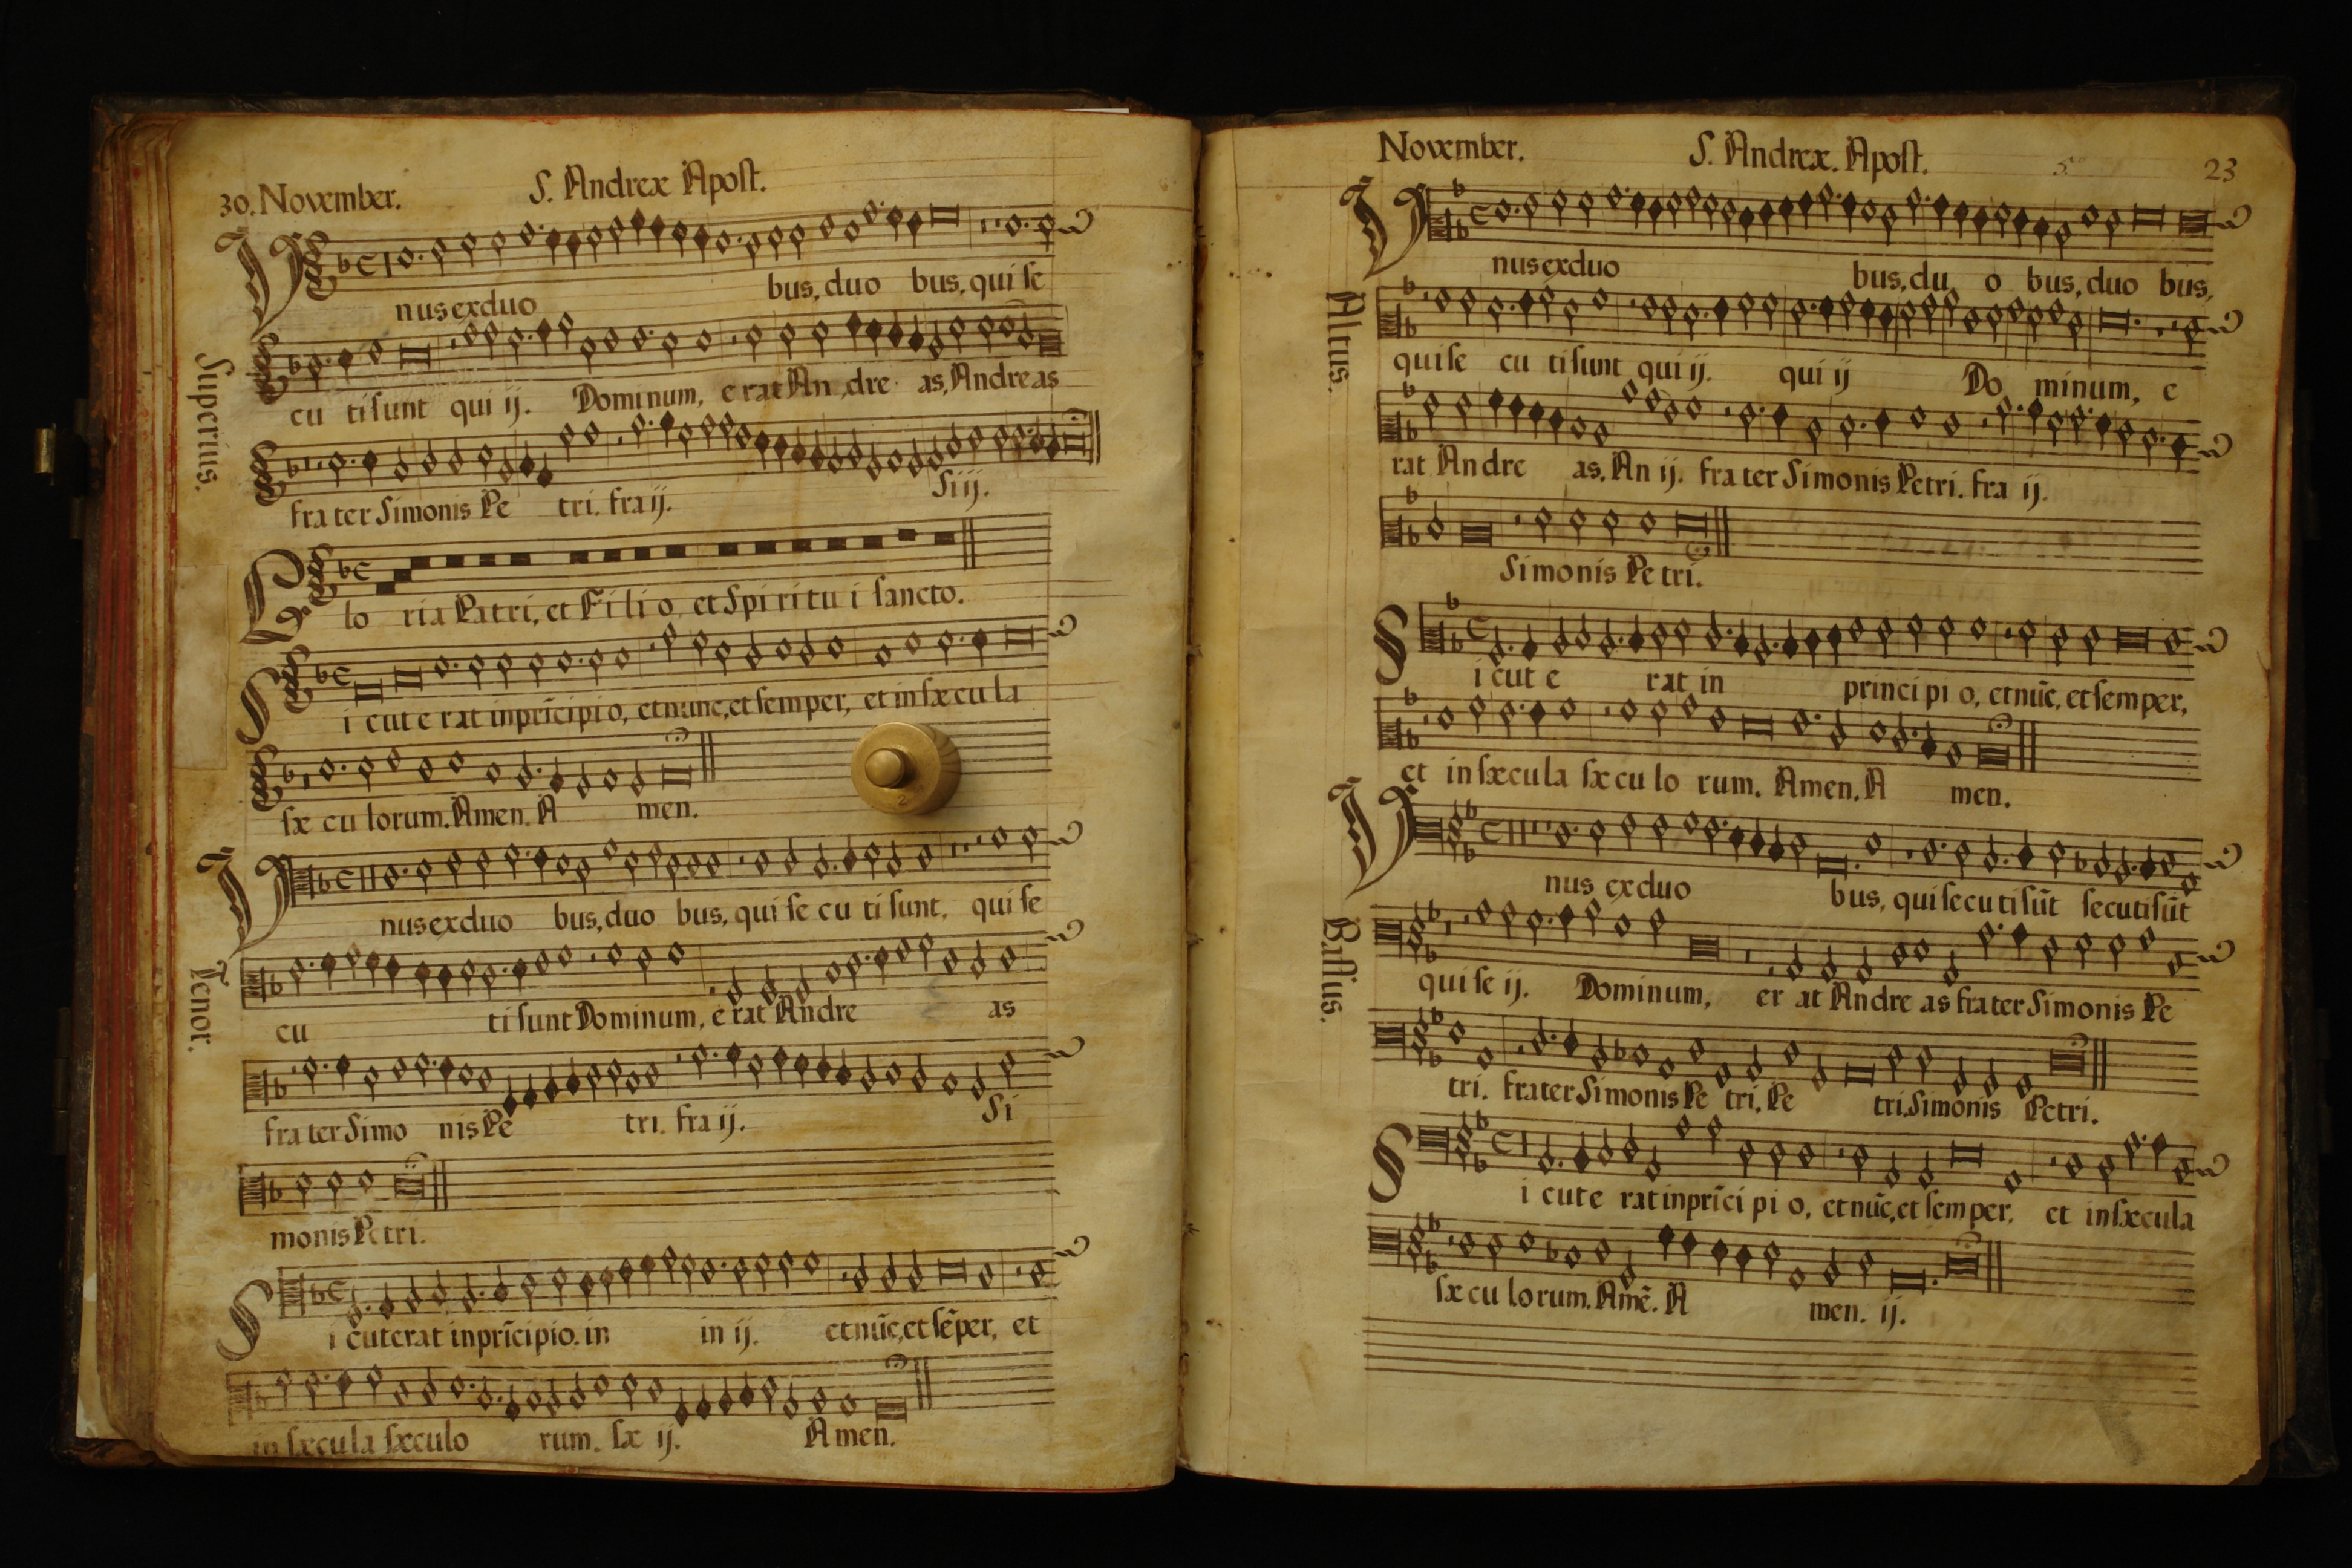 30. November. S. Andreæ Apost.
Superius.
Unus ex duo bus, duo bus, qui se
cu ti sunt qui ij. Dominum, e rat An dre as, Andreas
frater Simonis Pe tri. fra ij. Si ij.
Glo ria Patri, et Filio, et Spiritui sancto.
Sicut e rat in prīcipio, et nunc, et semper, et in sæcula
sæ cu lorum. Amen. A men.
Tenor.
Unus ex duo bus, duo bus, qui se cu ti sunt, qui se
cu ti sunt Dominum, e rat Andre as
frater Simo nis Pe tri. fra ij. Si
monis Petri.
Sicut erat in prīcipio. in in ij. et nūc, et sēper, et
in sæcula sæculo rum. sæ ij. Amen.
November. S. Andreæ. Apost. 23
Altus.
Unus ex duo bus, du o bus, duo bus,
qui se cu ti sunt qui ij. qui ij Do minum, e
rat Andre as. An ij. frater Simonis Petri. fra ij.
Simonis Petri.
Sicut e rat in principi o, et nūc, et semper,
et in sæcula sæ cu lo rum. Amen. A men.
Bassus.
Unus ex duo bus, qui secuti sūt secuti sūt
qui se ij. Dominum, er at Andre as frater Simonis Pe
tri. frater Simonis Pe tri. Pe tri. Simonis Petri.
Sicut e rat in prīci pi o, et nūc, et semper, et in sæcula
sæ cu lorum. Amē. A men. ij.